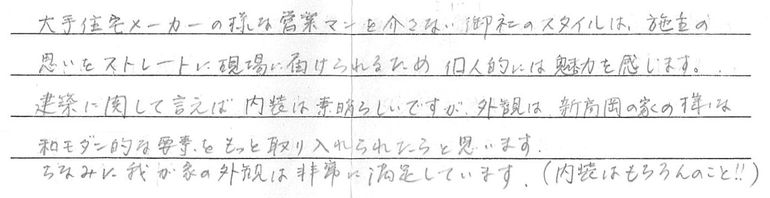 大手住宅メーカーの様な営業マンを介さない御社のスタイルは、施主の
思いをストレートに現場に届けられるため個人的には魅力を感じます。
建築に関して言えば内装は素晴らしいですが、外観は新高岡の家の様な
和モダン的な要素をもっと取り入れられたらと思います.
ちなみに我が家の外観は非常に満足しています.(内装はもちろんのこと!!)